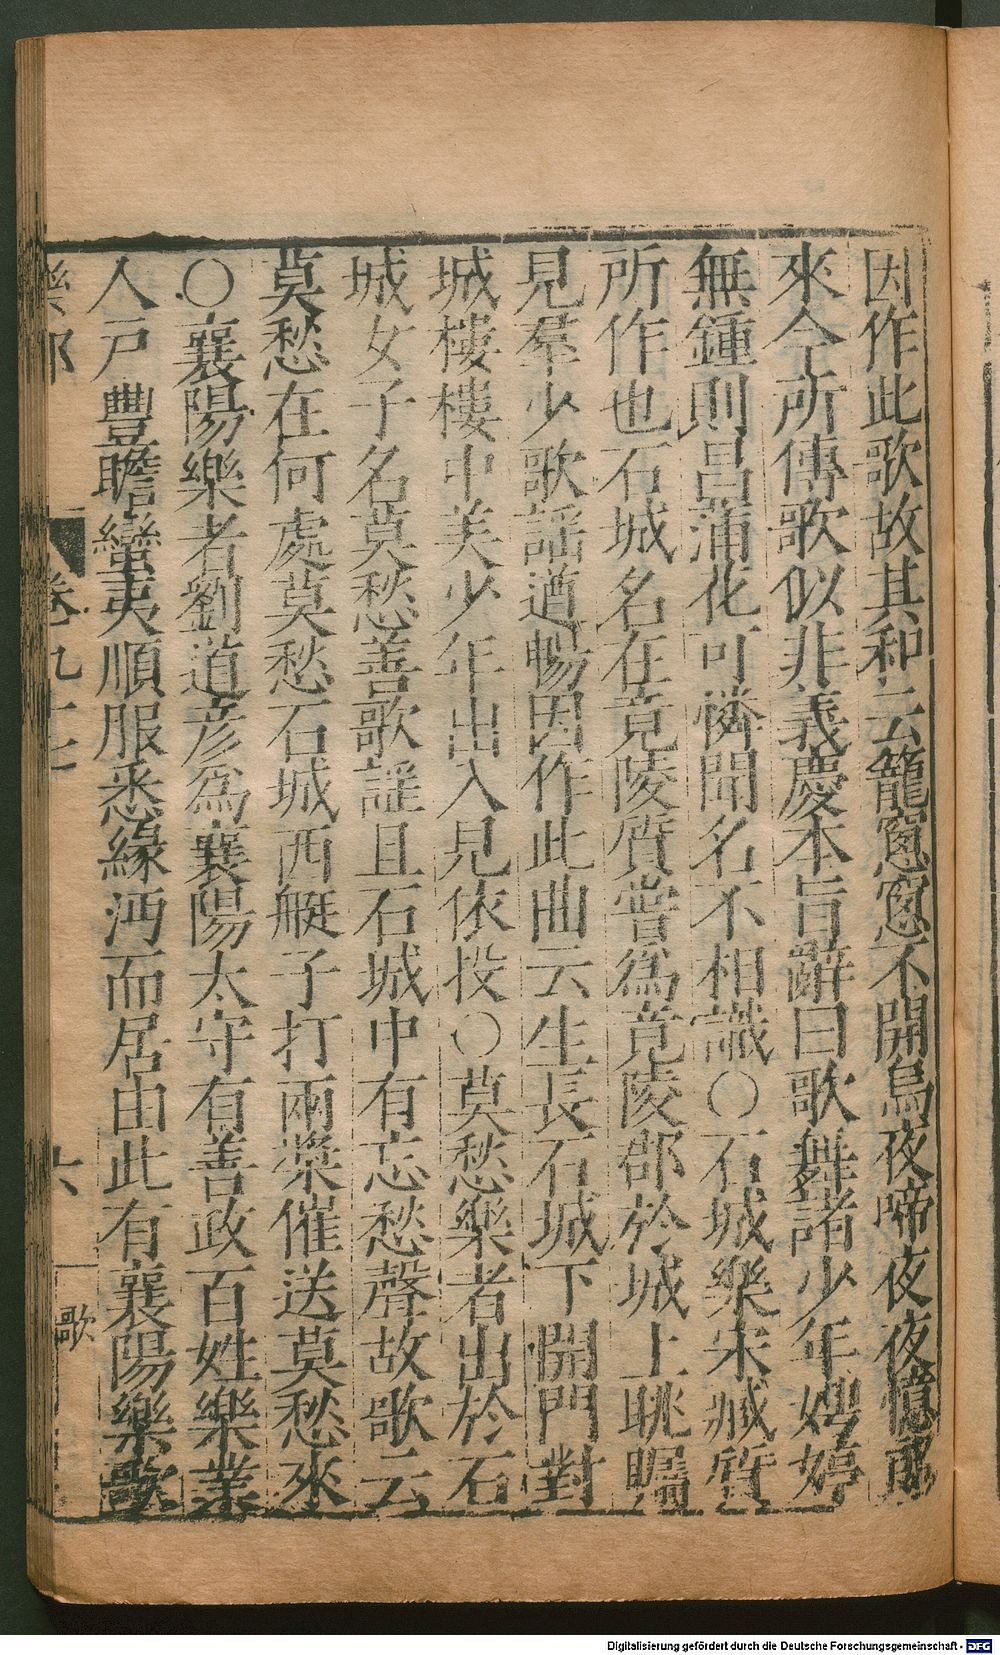 因作此歌故其和云籠窻窻不開烏夜啼夜夜憶郎
來今所傳歌似非義慶本旨辭曰歌舞諸少年娉婷
無鍾則昌蒲花可憐聞名不相識○石城樂宋臧質
所作也石城名在竟陵質嘗爲竟陵郡於城上眺矚
見羣少歌謡遒暢因作此曲云生長石城下開門對
城樓樓中美少年出入見依投○莫愁樂者出於石
城女子名莫愁善歌謡且石城中有忘愁聲故歌云
莫愁在何處莫愁石城西艇子打兩槳催送莫愁來
○襄陽樂者劉道彥爲襄陽太守有善政百姓樂業
人戶豐贍蠻夷順服悉緣沔而居由此有襄陽樂歌
樂部 卷九十七 六 歌
Digitalisierung gefördert durch die Deutsche Forschungsgemeinschaft - DFG